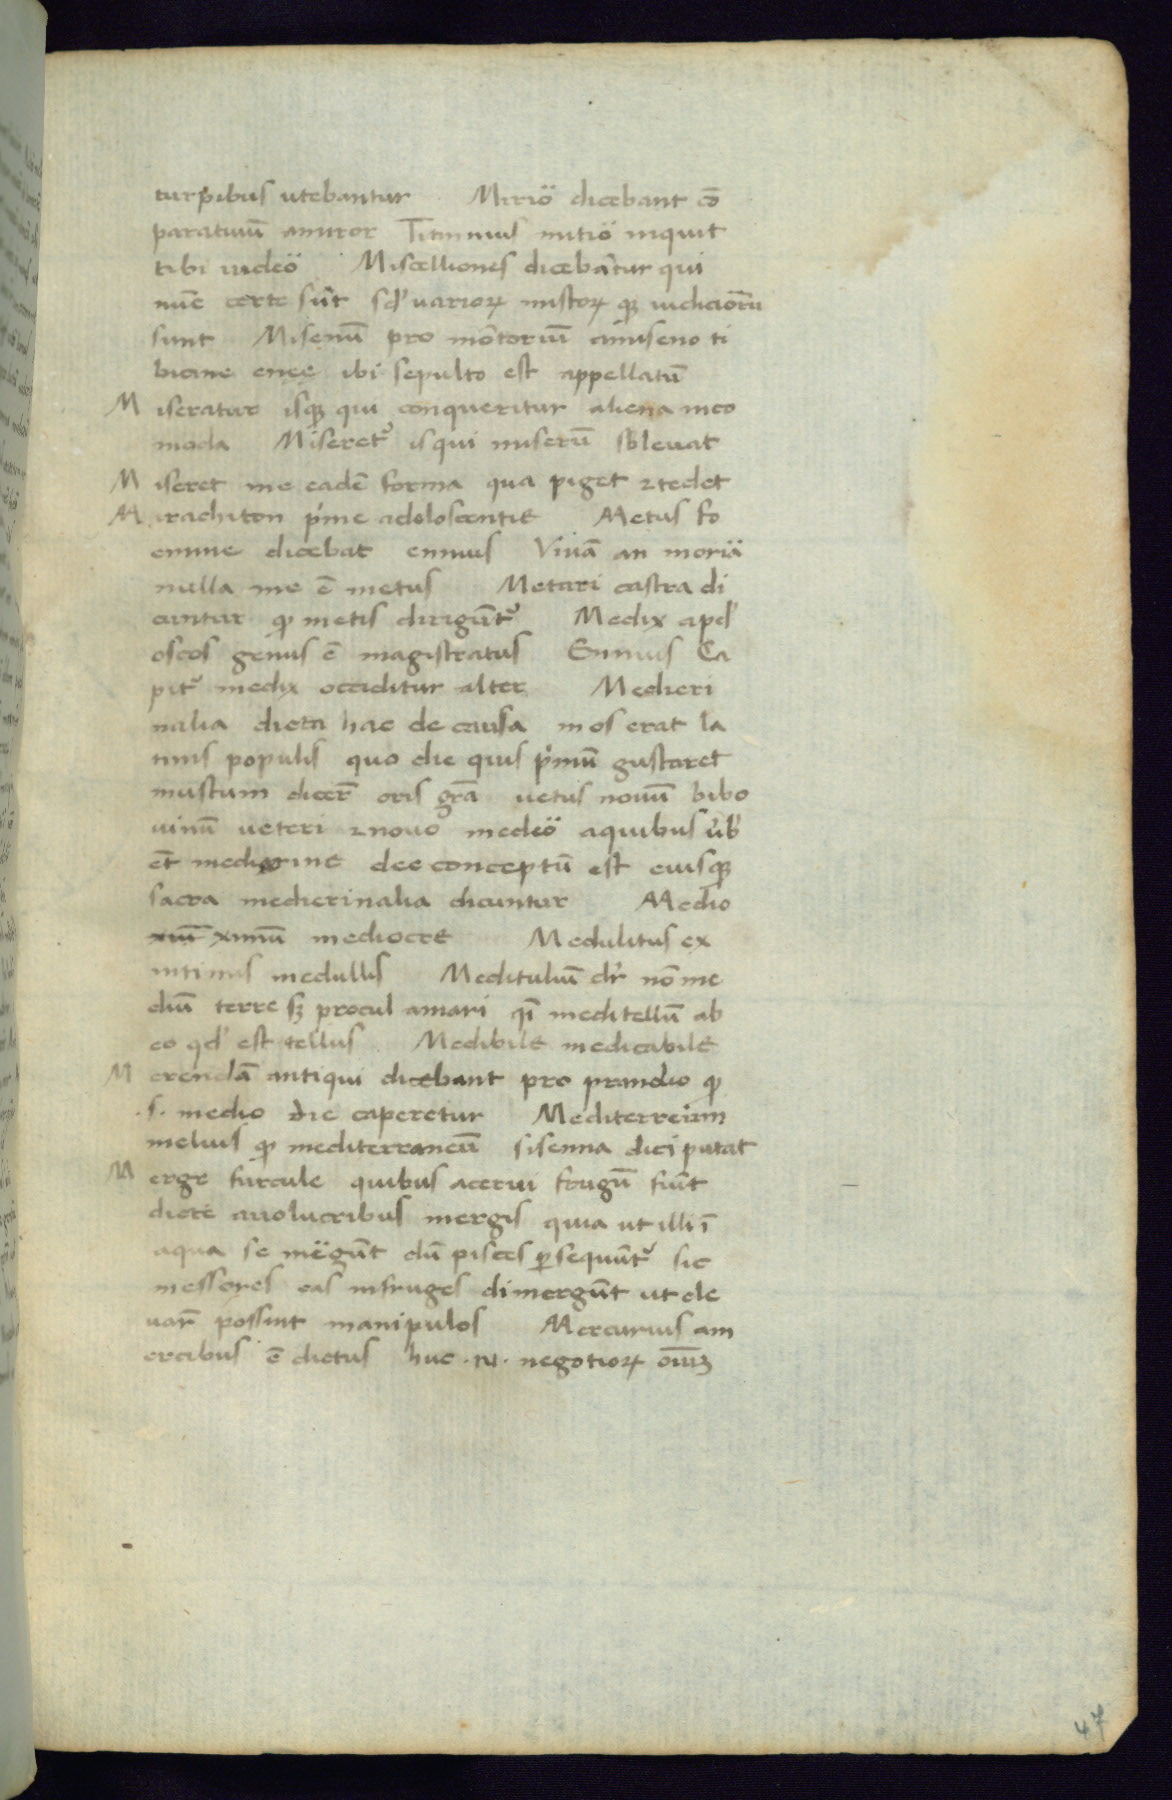 turpibus utebantur Mirio᷒ dicebant cō
paratiuū amiror Titinnius mitio᷒ inquit
tibi uideo᷒ Miscelliones dicebātur qui
nūc certe sūt sꝫ uarioꝝ mistoꝝ qꝫ iudicioꝛū
sunt Misenū pro mōtoriū amiseno ti
bicine enee ibi sepulto est appellatū
M iseratur isqꝫ qui conqueritur aliena inco
moda Miseret᷒ is qui miserū sbleuat
M iseret me eadē forma qua piget ⁊ tedet
M irachiton p'me adoloscentie Metus fo
emine dicebat ennius Viuā an moria᷒
nulla me ē metus Metari castra di
cuntur qꝫ metis dirigūt᷒ Medix apđ
oscos genus ē magistratus Ennius Ca
pit᷒ medix occiditur alter Medieri
nalia dicta hac de causa mos erat la
tinis populis quo die quis p'mū gustaret
mustum dicer̄ oris grā uetus nouū bibo
uinū ueteri ⁊ nouo medeo᷒ a quibus ūb'
ēt medicrine dee conceptū est eiusqꝫ
sacra medierinalia dicuntur Medio
xiū ximū mediocre Medulitus ex
intimis medullis Meditulliū dr̄ nō me
diū terre sꝫ procul amari qī meditellū ab
eo qđ est tellus Medibile medicabile
M erendā antiqui dicebant pro prandio qꝫ
.s. medio die caperetur Mediterreum
melius qꝫ mediterraneū sisenna dici putat
M erge furcule quibus acerui frugū fiūt
dicte auolucribus mergis quia ut illi ī
aqua se me᷒gūt dū pisces ꝑsequūt᷒ sic
messores eas infruges dimergūt ut ele
uar̄ possint manipulos Mercurius am
ercibus ē dictus huc .n. negotioꝝ oīuꝫ
47